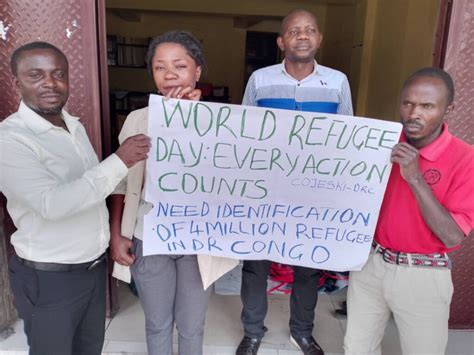 WORLD REFUGEE
DAY: EVERY ACTION
COUNTS COJESKI-DRC
NEED IDENTIFICATION
OF 4 MILLION REFUGEE
IN DR CONGO